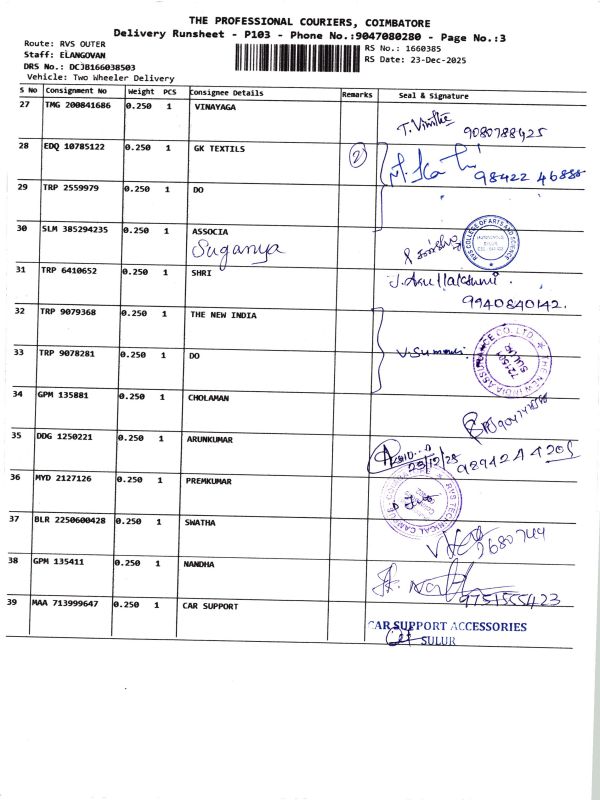 THE PROFESSIONAL COURIERS, COIMBATORE
Delivery Runsheet - P103 - Phone No.:9047080280 - Page No.:3
Route: RVS OUTER
RS No.: 1660385
Staff: ELANGOVAN
RS Date: 23-Dec-2025
DRS No.: DCJB166038503
Vehicle: Two Wheeler Delivery
S No Consignment No Weight PCS Consignee Details Remarks Seal & Signature
27 TMG 200841686 0.250 1 VINAYAGA
T. Vinitha 9080788425
28 EDQ 10785122 0.250 1 GK TEXTILS 2
98422 46888
29 TRP 2559979 0.250 1 DO
30 SLM 385294235 0.250 1 ASSOCIA
Suganya
RVS COLLEGE OF ARTS AND SCIENCE
31 TRP 6410652 0.250 1 SHRI
J. Arullakshmi
9940840142.
32 TRP 9079368 0.250 1 THE NEW INDIA
33 TRP 9078281 0.250 1 DO
THE NEW INDIA ASSURANCE CO. LTD.
721501
SULUR
34 GPM 135881 0.250 1 CHOLAMAN
35 DDG 1250221 0.250 1 ARUNKUMAR
23/12/25
36 MYD 2127126 0.250 1 PREMKUMAR
RVS TECHNICAL CAMPUS
37 BLR 2250600428 0.250 1 SWATHA
38 GPM 135411 0.250 1 NANDHA
9751555423
39 MAA 713999647 0.250 1 CAR SUPPORT
CAR SUPPORT ACCESSORIES
SULUR